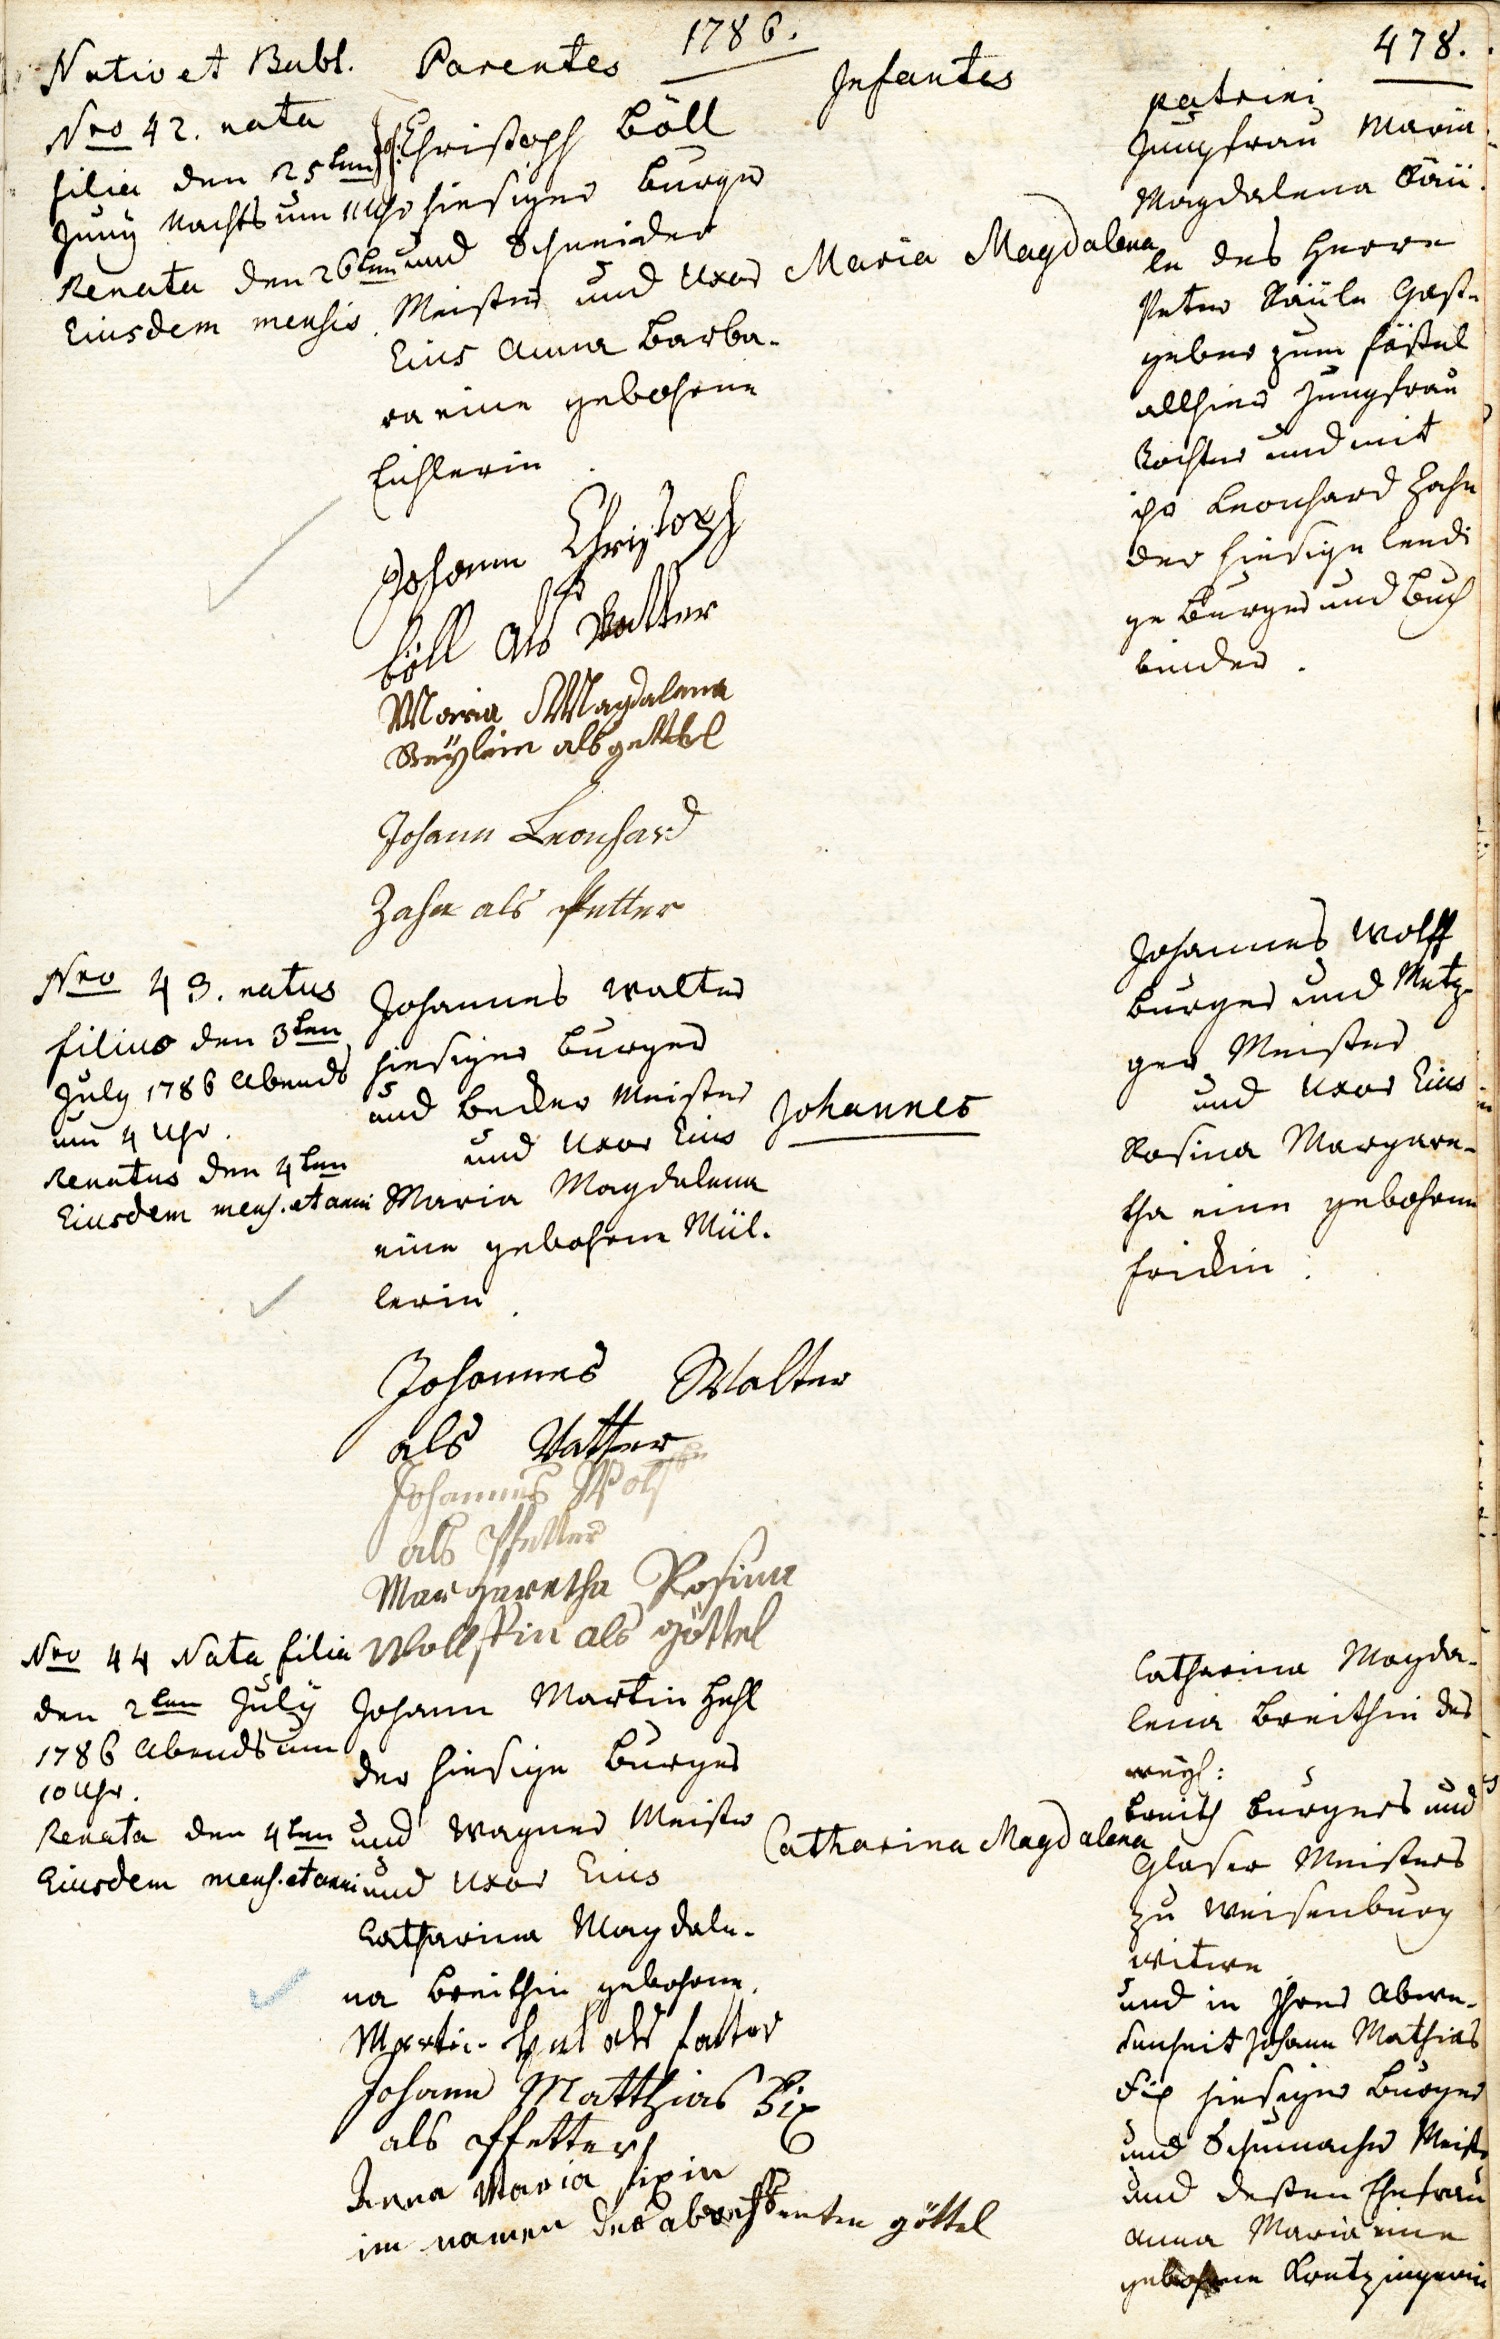 1786.
478.
Nativ et Babt.
Parentes
Infantes
Patrini
Nro 42. nata
filia den 25ten
Juny Nachts um 11 Uhr
Renata den 26ten
Eiusdem mensis.
Christoph Böll
hiesiger burger
und Schneider
Meister und Uxor
Eius Anna Barba-
ra eine gebohrne
Eichlerin.
Maria Magdalena
Jungfrau Maria
Magdalena
le des Herrn
Peter Gast-
geber zum
allhier Jungfrau
Tochter und mit
ihr Leonhard Zahn
der hiesige ledi
ge Burger und Buch
binder.
Johann Christoph
böll Als Vatter
Maria Magdalena
als gettel
Johann Leonhard
Zahn als Petter
Nro 43. natus
filius den 3ten
July 1786 Abends
um 4 Uhr.
Renatus den 4ten
Eiusdem mens. et anni
Johannes Walter
hiesiger burger
und becker Meister
und Uxor Eius
Maria Magdalena
eine gebohrne Mül-
lerin.
Johannes
Johannes Wolff
burger und Metz-
ger Meister
und Uxor Eius
Rosina Margare-
tha eine gebohrne
frickin.
Johannes Walter
als Vatter
Johannes Wolf
als Pfetter
Margaretha Rosina
Wolffin als göttel
Nro 44 Nata filia
den 2ten July
1786 Abends um
10 Uhr.
Renata den 4ten
Eiusdem mens. et anni
Johann Martin Hehl
der hiesige burger
und Wagner Meister
und Uxor Eius
Catharina Magdale-
na breithin gebohrne.
Catharina Magdalena
Catharina Magda-
lena breithin des
weyl:
breith burgers und
Glaser Meisters
zu Weisenburg
Witwe
und in Ihrer Abwe-
senheit Johann Mathias
Fix hiesiger burger
und Schumacher Meister
und dessen Ehefrau
Anna Maria eine
gebohrne Kretzingerin
Martin Hel als fatter
Johann Matthias Fix
als Pfetter
Anna Maria fixin
im namen der göttel